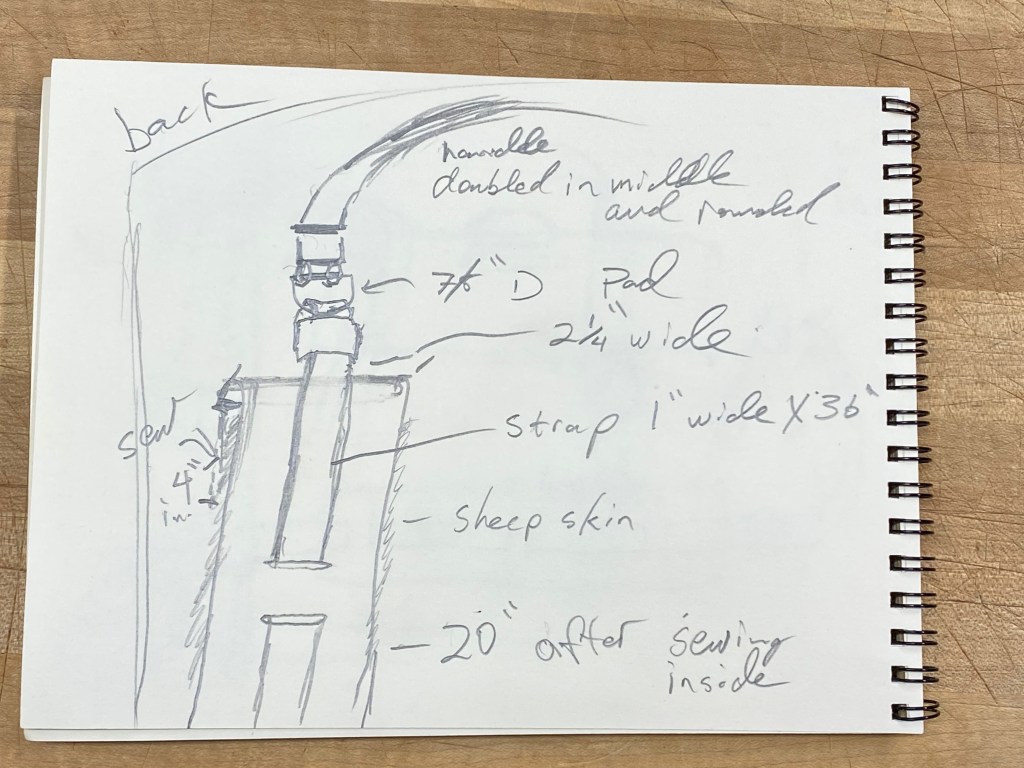 back
doubled in middle
and rounded
" D Pad
2 1/4" wide
sew
strap 1" wide X 36"
4"
in.
sheep skin
20" after sewing
inside